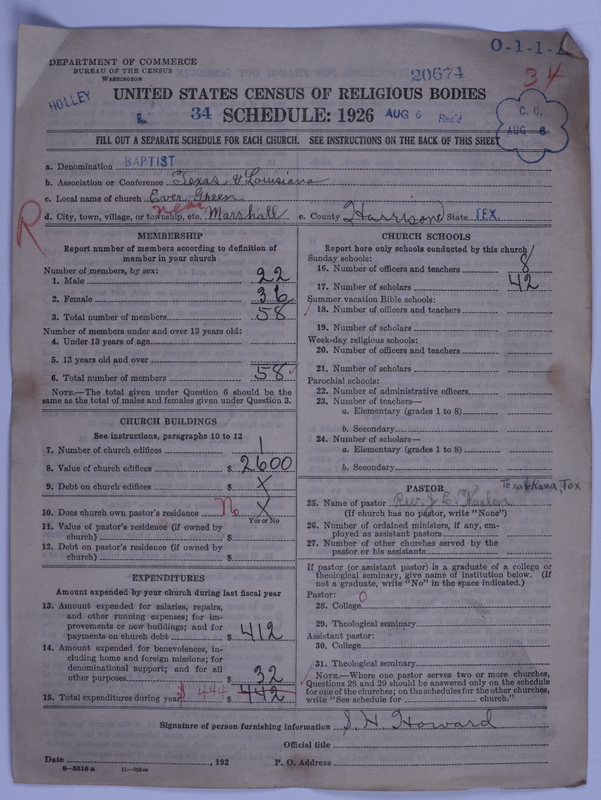 O-1-1-
DEPARTMENT OF COMMERCE
BUREAU OF THE CENSUS
WASHINGTON
20674
34
HOLLEY
UNITED STATES CENSUS OF RELIGIOUS BODIES
34 SCHEDULE: 1926 AUG 6 Rec'd
C. C.
AUG 6
FILL OUT A SEPARATE SCHEDULE FOR EACH CHURCH. SEE INSTRUCTIONS ON THE BACK OF THIS SHEET
a. Denomination BAPTIST
b. Association or Conference Texas & Louisiana
c. Local name of church Ever Green
near
d. City, town, village, or township, etc. Marshall e. County Harrison State TEX.
R
MEMBERSHIP
Report number of members according to definition of
member in your church
Number of members, by sex:
1. Male 22
2. Female 36
3. Total number of members 58
Number of members under and over 13 years old:
4. Under 13 years of age
5. 13 years old and over
6. Total number of members 58
NOTE.—The total given under Question 6 should be the
same as the total of males and females given under Question 3.
CHURCH BUILDINGS
See instructions, paragraphs 10 to 12
7. Number of church edifices 1
8. Value of church edifices $ 2600
9. Debt on church edifices $ X
10. Does church own pastor's residence? No X
Yes or No
11. Value of pastor's residence (if owned by
church) $
12. Debt on pastor's residence (if owned by
church) $
EXPENDITURES
Amount expended by your church during last fiscal year
13. Amount expended for salaries, repairs,
and other running expenses; for im-
provements or new buildings; and for
payments on church debt $ 412
14. Amount expended for benevolences, in-
cluding home and foreign missions; for
denominational support; and for all
other purposes $ 32
15. Total expenditures during year $ 444 $ 442
CHURCH SCHOOLS
Report here only schools conducted by this church
Sunday schools:
16. Number of officers and teachers 8
17. Number of scholars 42
Summer vacation Bible schools:
18. Number of officers and teachers
19. Number of scholars
Week-day religious schools:
20. Number of officers and teachers
21. Number of scholars
Parochial schools:
22. Number of administrative officers
23. Number of teachers—
a. Elementary (grades 1 to 8)
b. Secondary
24. Number of scholars—
a. Elementary (grades 1 to 8)
b. Secondary
PASTOR
Texarkana, Tex
25. Name of pastor Rev. J. E.
(If church has no pastor, write "None")
26. Number of ordained ministers, if any, em-
ployed as assistant pastors
27. Number of other churches served by the
pastor or his assistants
If pastor (or assistant pastor) is a graduate of a college or
theological seminary, give name of institution below. (If
not a graduate, write "No" in the space indicated.)
Pastor: 0
28. College
29. Theological seminary
Assistant pastor:
30. College
31. Theological seminary
NOTE.—Where one pastor serves two or more churches,
Questions 28 and 29 should be answered only on the schedule
for one of the churches; on the schedules for the other churches,
write "See schedule for church."
Signature of person furnishing information J. H. Howard
Official title
Date , 192 P. O. Address